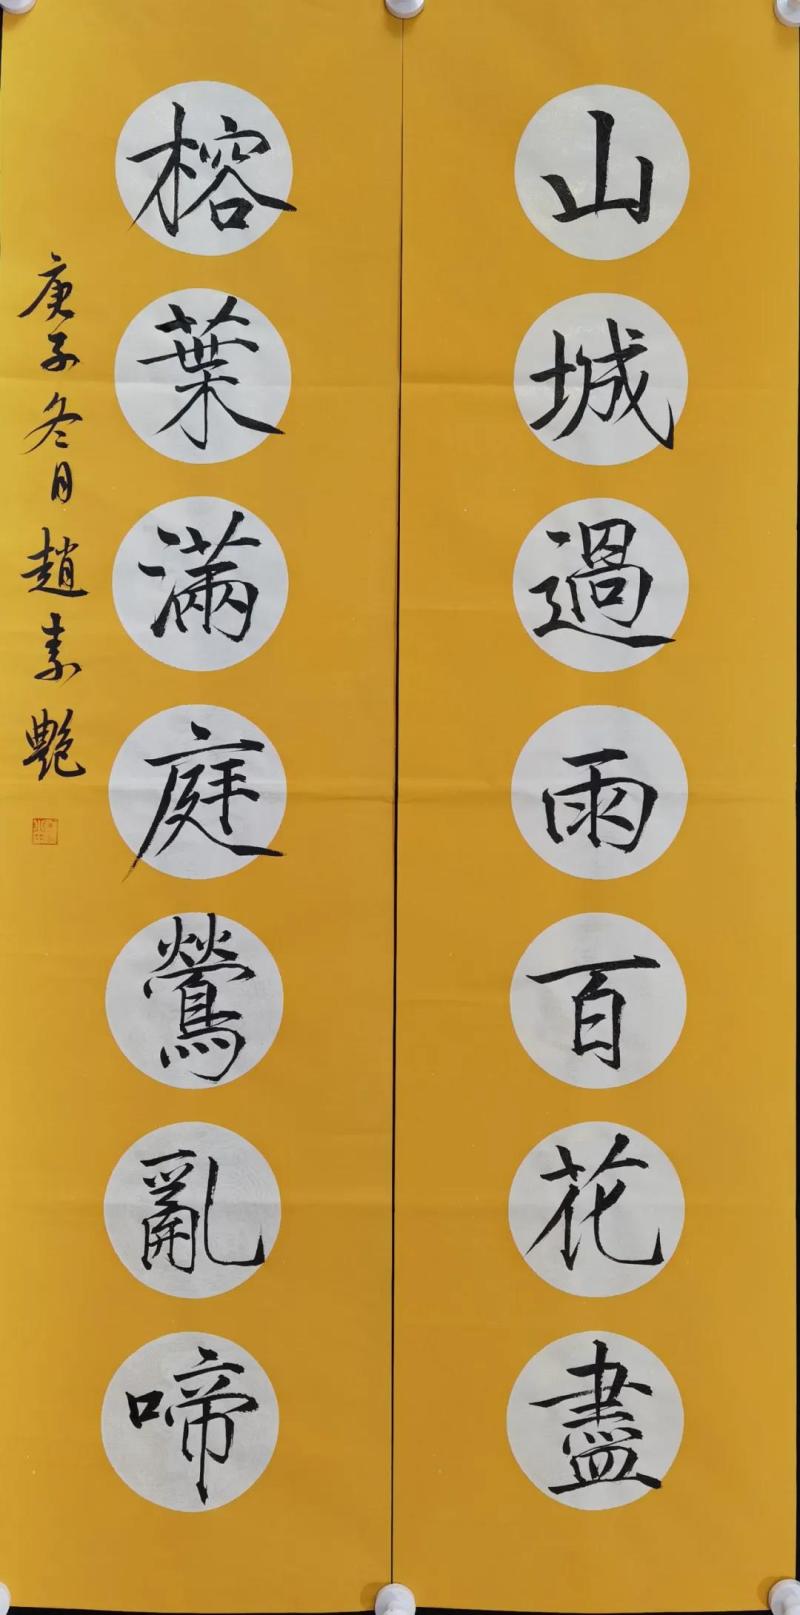 山城過雨百花盡
榕葉滿庭鶯亂啼
庚子冬月趙素艷